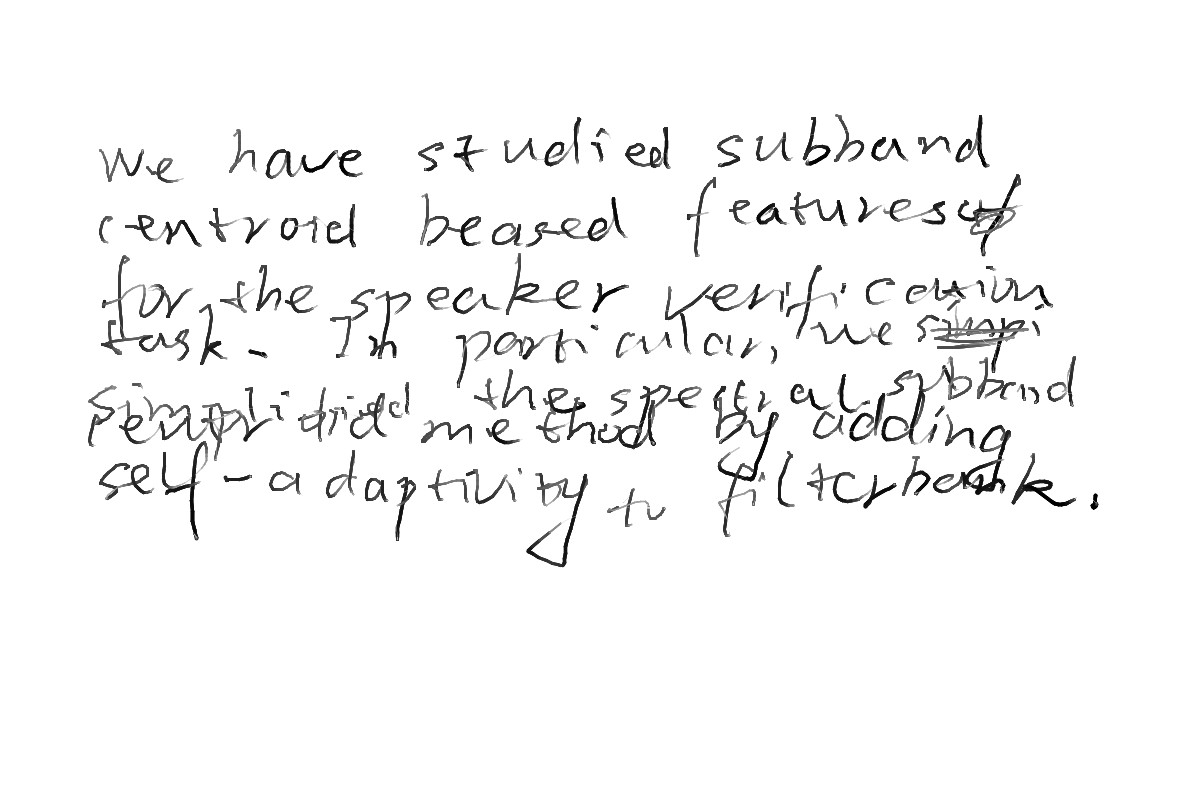 We have studied subband
centroid beased features
for the speaker verification
task. In particular, we
simplified the spectral subband
centroid method by adding
self-adaptivity to filterbank.